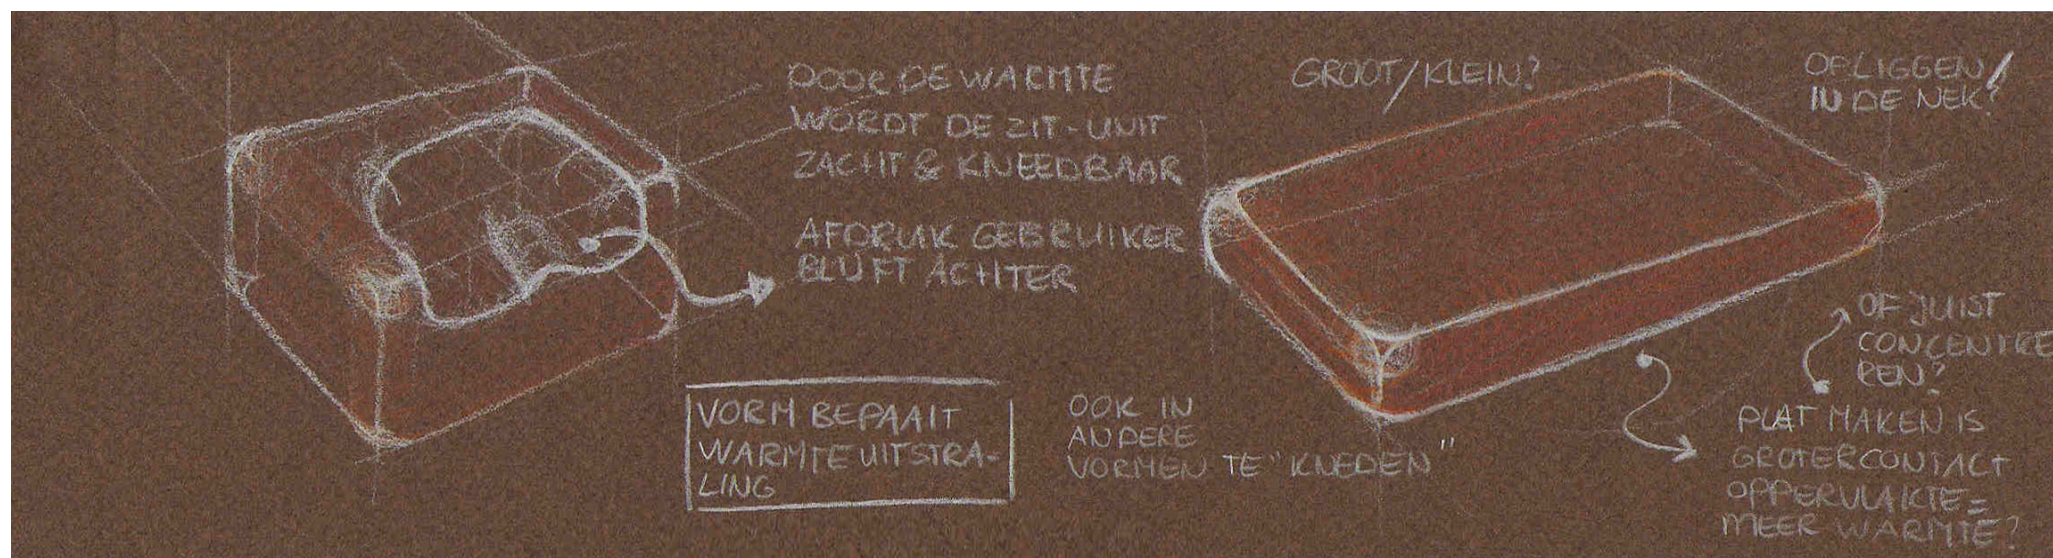 DOOR DE WARMTE
WORDT DE ZIT-UNIT
ZACHT & KNEEDBAAR
AFDRUK GEBRUIKER
BLIJFT ACHTER
VORM BEPAALT
WARMTEUITSTRA-
LING
OOK IN
ANDERE
VORMEN TE "KNEDEN"
GROOT/KLEIN?
OPLIGGEN/
IN DE NEK?
OF JUIST
CONCENTRE
REN?
PLAT MAKEN IS
GROTER CONTACT
OPPERVLAKTE =
MEER WARMTE?